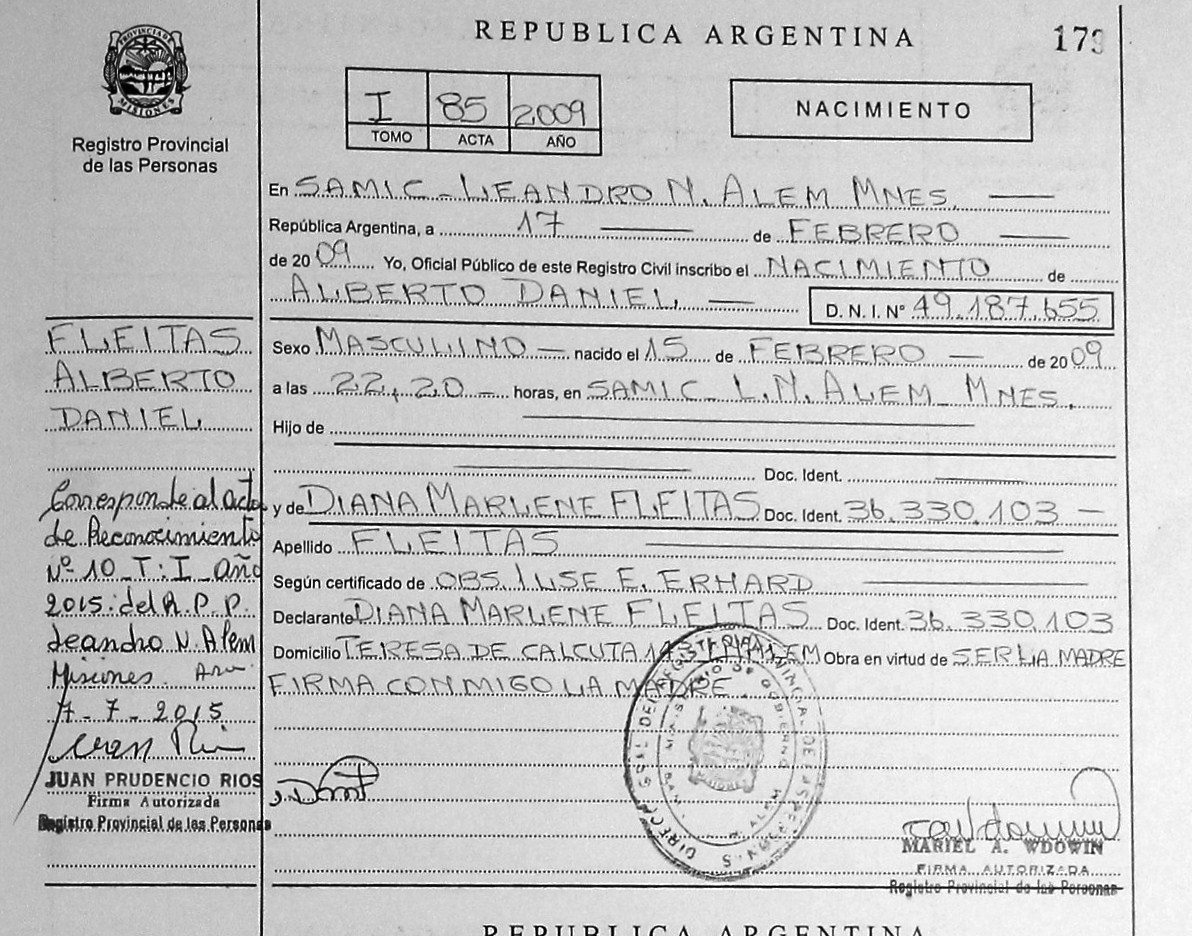 REPUBLICA ARGENTINA
179
PROVINCIA DE MISIONES
Registro Provincial
de las Personas
I 85 2009
TOMO ACTA AÑO
NACIMIENTO
En SAMIC - LEANDRO N. ALEM MNES.
República Argentina, a 17 de FEBRERO
de 2009 Yo, Oficial Público de este Registro Civil inscribo el NACIMIENTO de
ALBERTO DANIEL D. N. I. Nº 49.187.655
Sexo MASCULINO nacido el 15 de FEBRERO de 2009
a las 22,20 horas, en SAMIC L.N. ALEM MNES.
Hijo de
Doc. Ident.
y de DIANA MARLENE FLEITAS Doc. Ident. 36.330.103
Apellido FLEITAS
Según certificado de OBS. ILSE E. ERHARD
Declarante DIANA MARLENE FLEITAS Doc. Ident. 36.330.103
Domicilio TERESA DE CALCUTA ALEM Obra en virtud de SER LA MADRE
FIRMA CONMIGO LA MADRE.
FLEITAS
ALBERTO
DANIEL
Corresponde al acta
de Reconocimiento
Nº 10 T: I Año
2015 del R.P.P.
Leandro N. Alem
Misiones
7-7-2015
JUAN PRUDENCIO RIOS
Firma Autorizada
Registro Provincial de las Personas
MARIEL A. WDOWIN
FIRMA AUTORIZADA
Registro Provincial de las Personas
REPUBLICA ARGENTINA